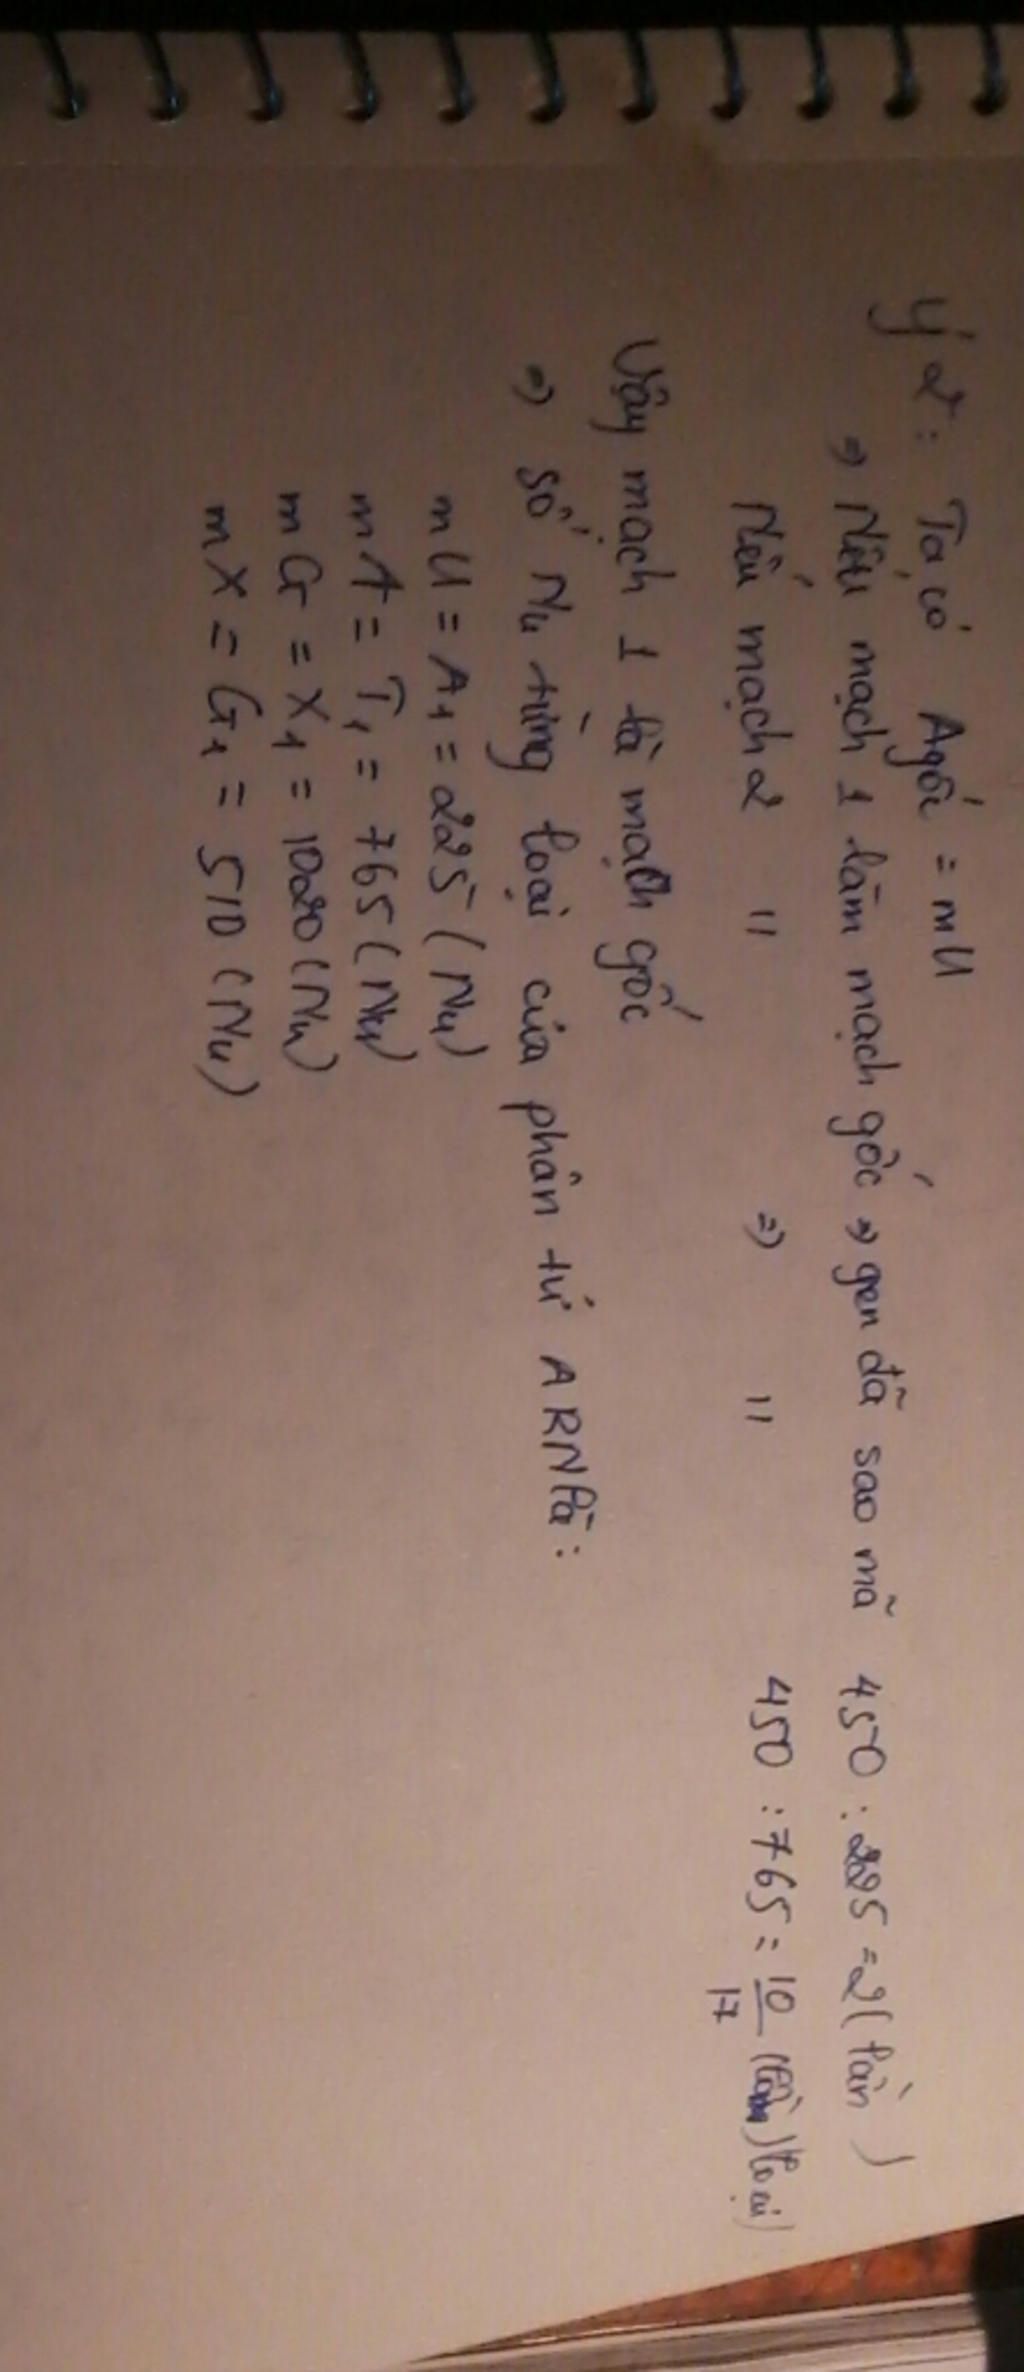 Ý 2: Ta có Agốc = mU
=> Nếu mạch 1 làm mạch gốc => gen đã sao mã 450 : 225 = 2 (lần)
Nếu mạch 2 " => " 450 : 765 = 10/17 (lần) (loại)
Vậy mạch 1 là mạch gốc
=> Số Nu từng loại của phân tử ARN là:
mU = A1 = 225 (Nu)
mA = T1 = 765 (Nu)
mG = X1 = 1020 (Nu)
mX = G1 = 510 (Nu)